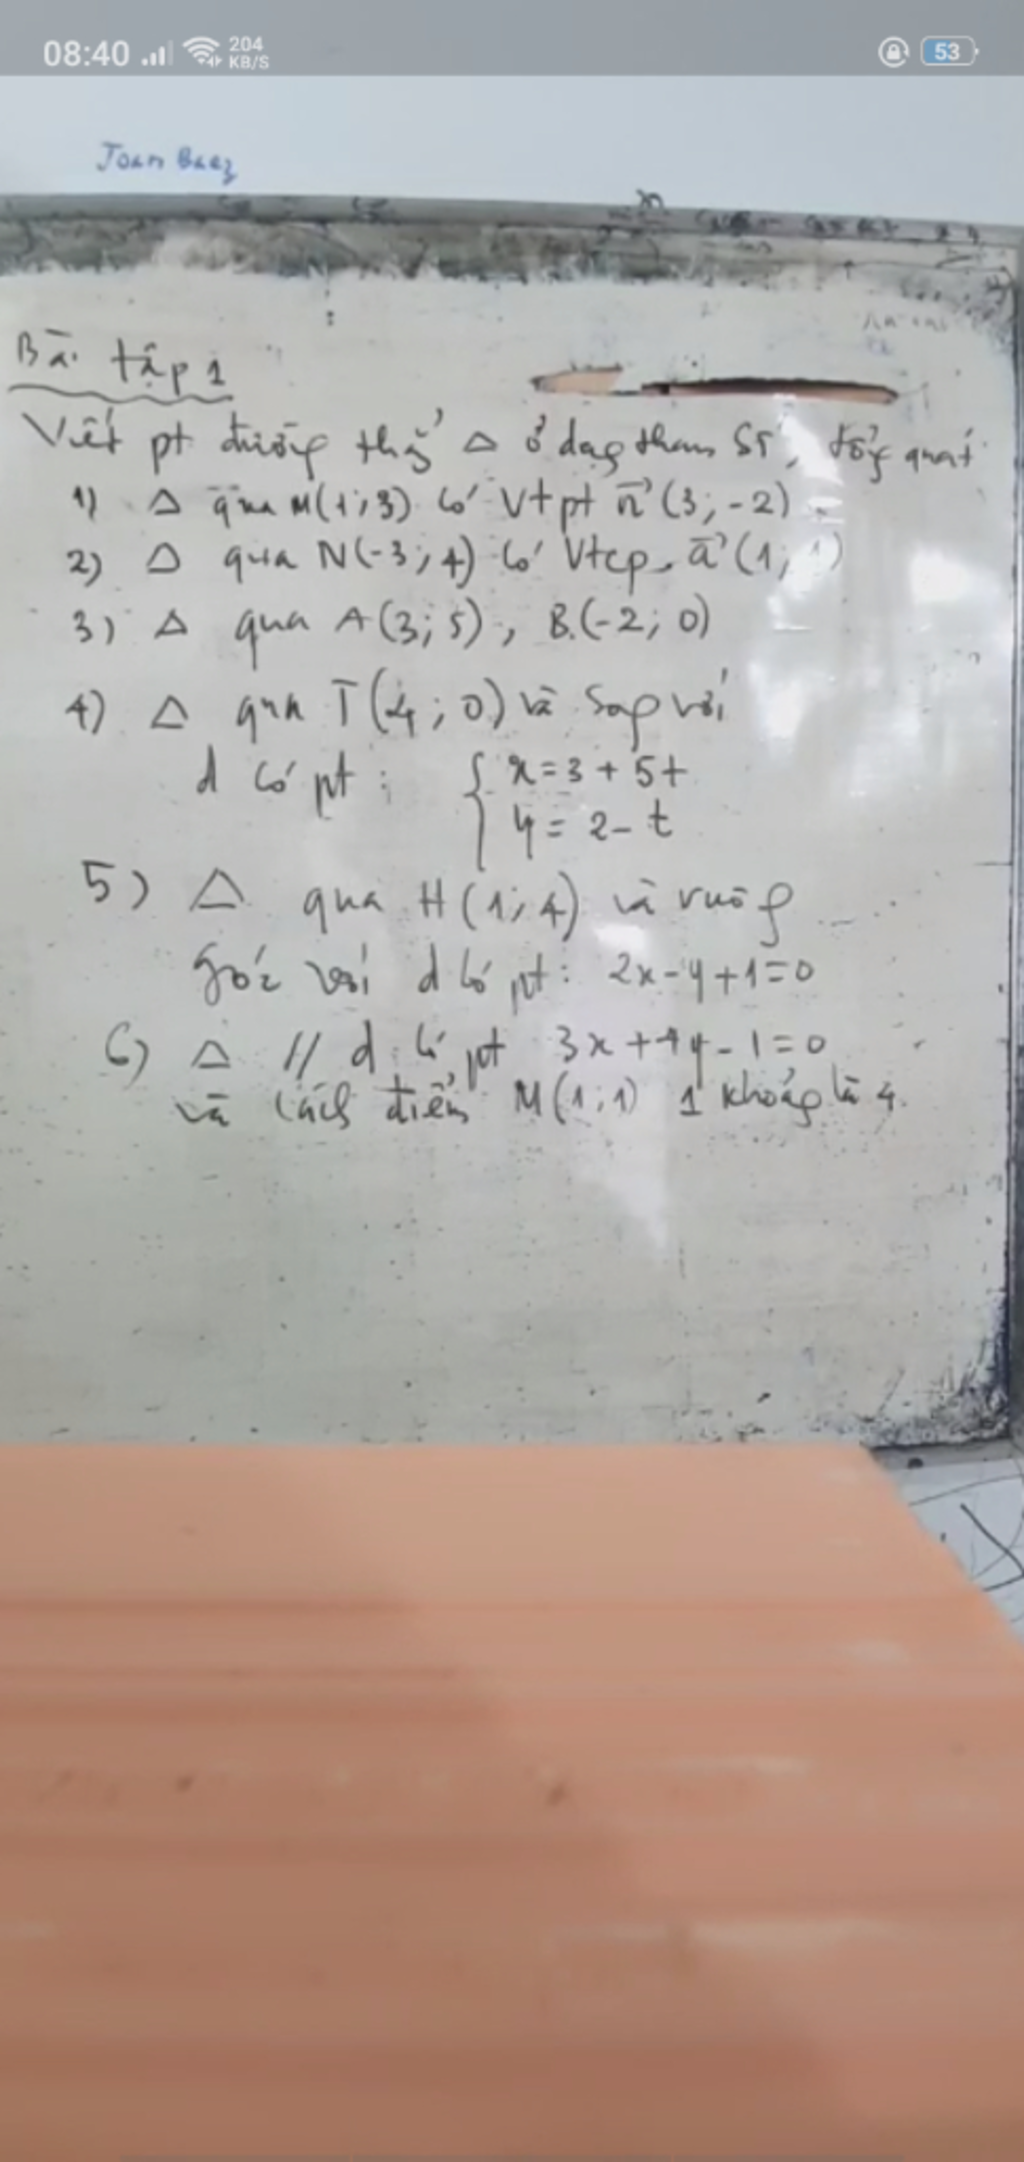 08:40 204 KB/S 53
Joan Baez
Bài tập 1
Viết pt đường thẳng Δ ở dạng tham số, tổng quát
1) Δ qua M(1;3) có Vtpt n⃗(3;-2)
2) Δ qua N(-3;4) có Vtcp a⃗(1;1)
3) Δ qua A(3;5), B(-2;0)
4) Δ qua T(4;0) và song với
d có pt: { x=3+5t
y=2-t
5) Δ qua H(1;4) và vuông
góc với d có pt: 2x-y+1=0
6) Δ // d có pt 3x+4y-1=0
và cách điểm M(1;1) 1 khoảng là 4.